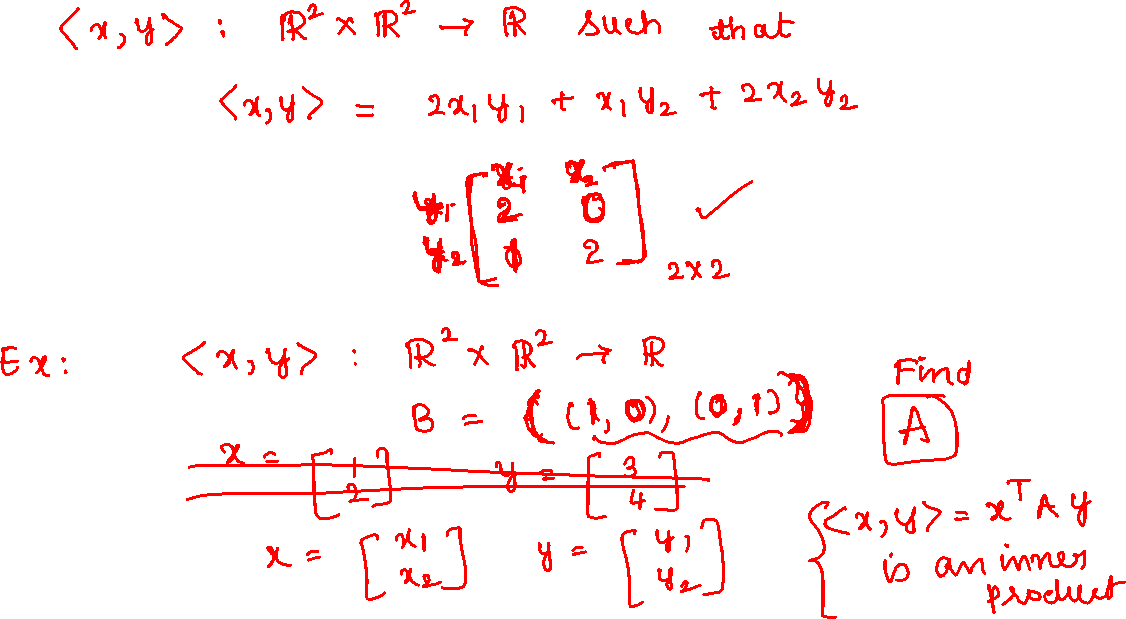 ⟨x, y⟩ : ℝ² × ℝ² → ℝ such that
⟨x, y⟩ = 2x₁y₁ + x₁y₂ + 2x₂y₂
x₁ x₂
y₁ [ 2 0 ]
y₂ [ 1 2 ] ₂ₓ₂ ✓
Ex: ⟨x, y⟩ : ℝ² × ℝ² → ℝ
Find
B = ((1, 0), (0, 1))
A
x = [1 2] y = [3 4]
x = [x₁ x₂] y = [y₁ y₂]
{ ⟨x, y⟩ = xᵀA y
is an inner
product